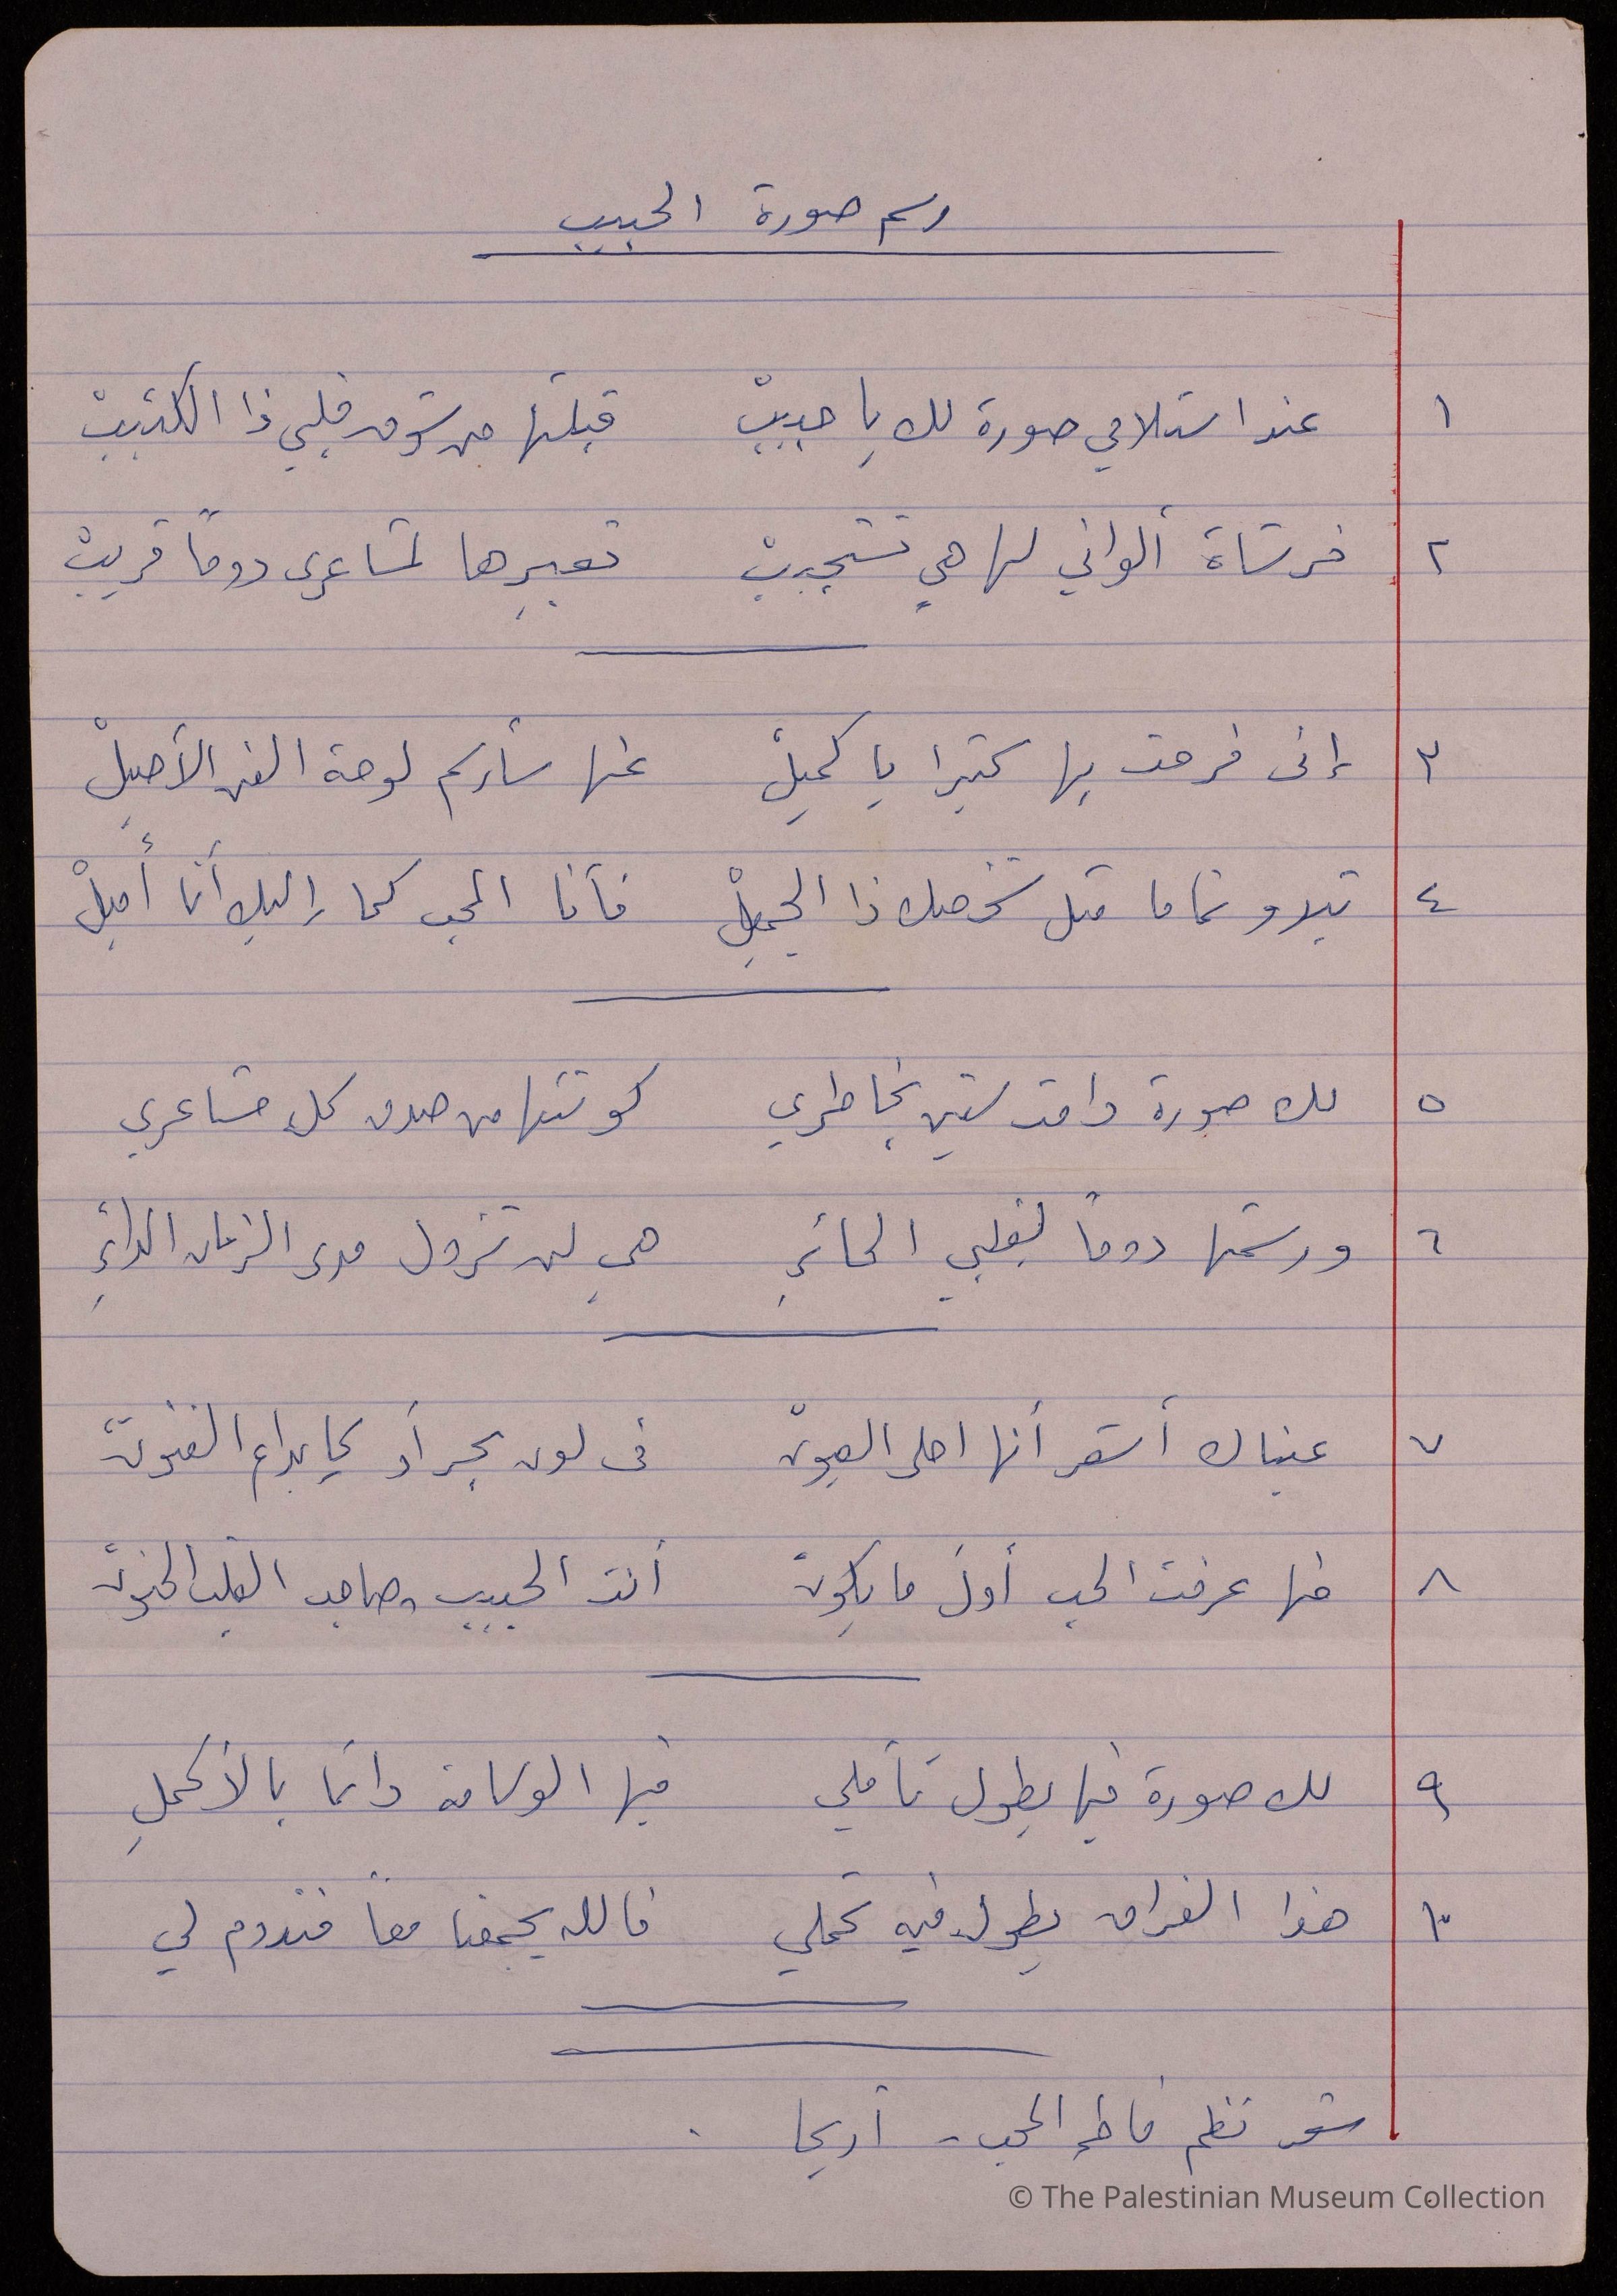 رسم صورة الحبيب
١ عند استلامي صورة لك يا حبيبْ قبلتها من شوق قلبي ذا الكئيبْ
٢ فرشاة ألواني لها هي تستجيبْ تعبيرها لمشاعري دوماً قريبْ
٣ إنى فرحت بها كثيرا يا كميلْ عنها سأرسم لوحة الفن الأصيلْ
٤ تبدو تماما مثل شخصك ذا الجميلْ فأنا المحب كما إليك أنا أميلْ
٥ لك صورة دامت سنين بخاطري كونتها من صدق كل مشاعري
٦ ورسمتها دوماً لقلبي الحائرِ هي لن تزول مدى الزمان الدائرِ
٧ عيناك أشعر أنها احلى العيونْ فى لون بحر أو كإبداع الفنونْ
٨ فيها عرفت الحب أولَ ما يكونْ أنت الحبيب وصاحب القلب الحنونْ
٩ لك صورة فيها يطول تأملي فيها الوسامة دائما بالأكملِ
١٠ هذا الفراق يطول فيه تحملي فالله يجمعنا معاً فتدوم لي
شعر نظم فاطمة المحب - أريحا .
© The Palestinian Museum Collection